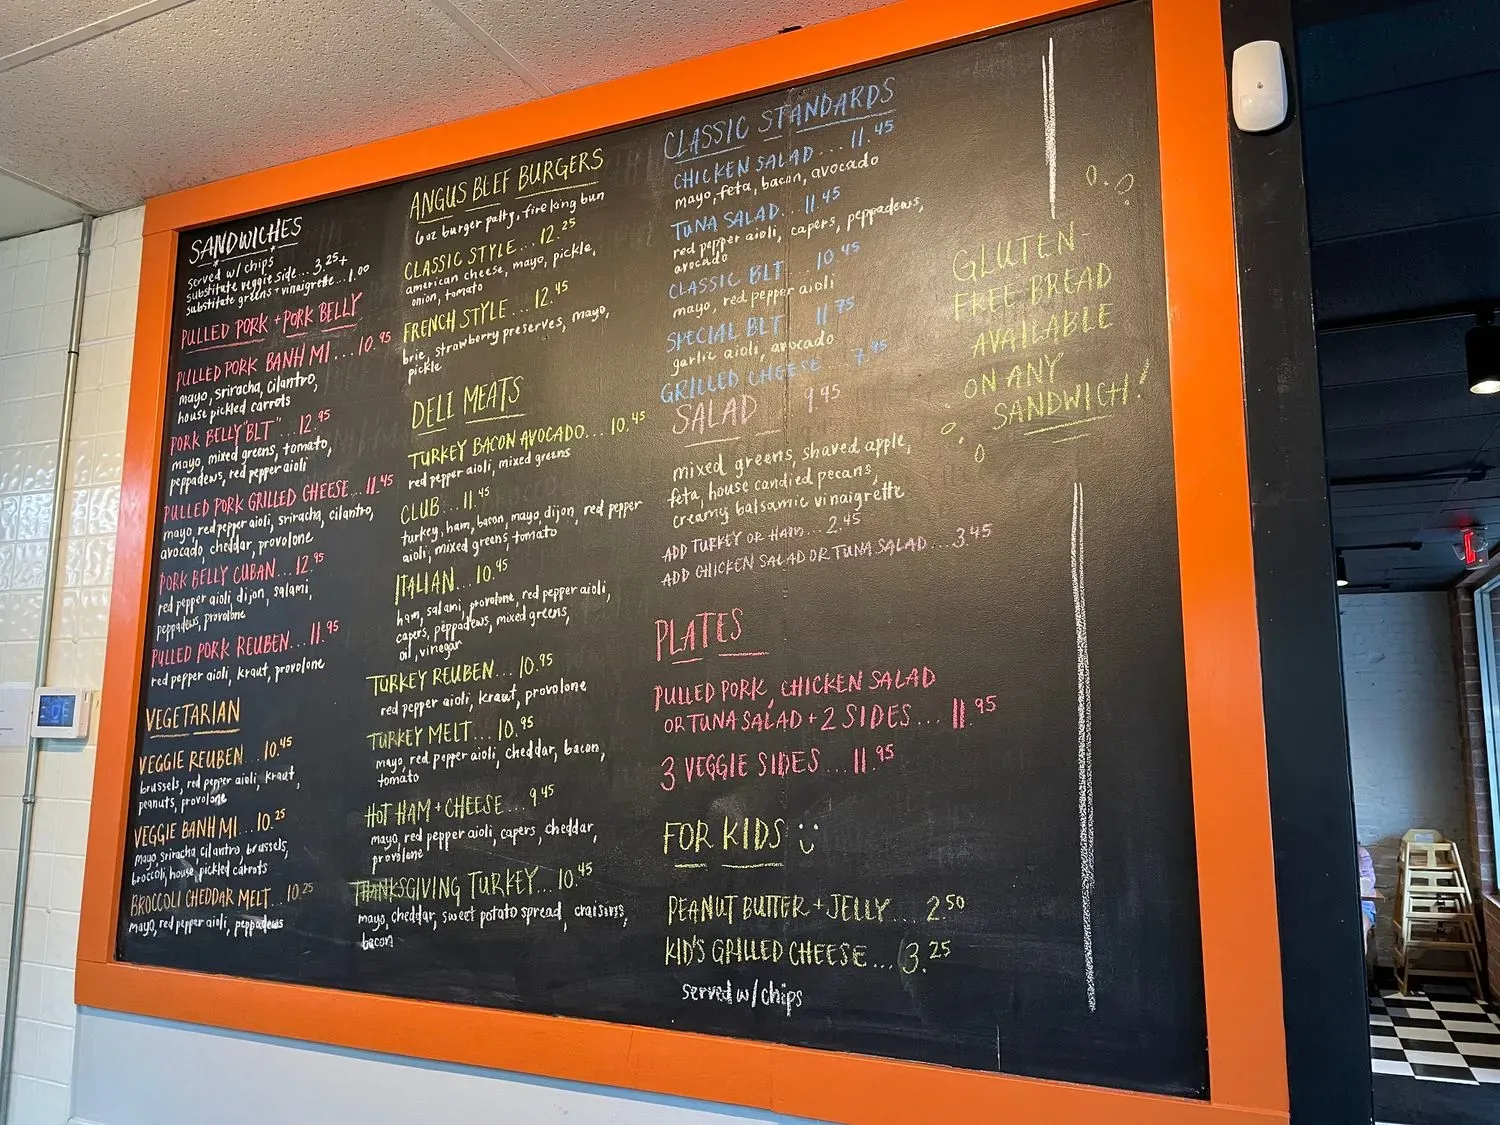 SANDWICHES
served w/ chips
substitute veggie side... 3.25+
substitute greens + vinaigrette... 1.00
PULLED PORK + PORK BELLY
PULLED PORK BANH MI.... 10.95
mayo, sriracha, cilantro,
house pickled carrots
PORK BELLY "BLT"... 12.95
mayo, mixed greens, tomato,
peppadews, red pepper aioli
PULLED PORK GRILLED CHEESE... 11.45
mayo, red pepper aioli, sriracha, cilantro,
avocado, cheddar, provolone
PORK BELLY CUBAN... 12.95
red pepper aioli, dijon, salami,
peppadews, provolone
PULLED PORK REUBEN... 11.95
red pepper aioli, kraut, provolone
VEGETARIAN
VEGGIE REUBEN... 10.45
brussels, red pepper aioli, kraut,
peanuts, provolone
VEGGIE BANH MI... 10.25
mayo, sriracha, cilantro, brussels,
broccoli, house pickled carrots
BROCCOLI CHEDDAR MELT... 10.25
mayo, red pepper aioli, peppadews
ANGUS BEEF BURGERS
6oz burger patty, fire king bun
CLASSIC STYLE... 12.25
american cheese, mayo, pickle,
onion, tomato
FRENCH STYLE... 12.45
brie, strawberry preserves, mayo,
pickle
DELI MEATS
TURKEY BACON AVOCADO... 10.45
red pepper aioli, mixed greens
CLUB... 11.45
turkey, ham, bacon, mayo, dijon, red pepper
aioli, mixed greens, tomato
ITALIAN... 10.45
ham, salami, provolone, red pepper aioli,
capers, peppadews, mixed greens,
oil, vinegar
TURKEY REUBEN... 10.95
red pepper aioli, kraut, provolone
TURKEY MELT... 10.95
mayo, red pepper aioli, cheddar, bacon,
tomato
HOT HAM + CHEESE... 9.45
mayo, red pepper aioli, capers, cheddar,
provolone
THANKSGIVING TURKEY... 10.45
mayo, cheddar, sweet potato spread, craisins,
bacon
CLASSIC STANDARDS
CHICKEN SALAD... 11.45
mayo, feta, bacon, avocado
TUNA SALAD... 11.45
red pepper aioli, capers, peppadews,
avocado
CLASSIC BLT... 10.45
mayo, red pepper aioli
SPECIAL BLT... 11.75
garlic aioli, avocado
GRILLED CHEESE... 7.95
SALAD 9.45
mixed greens, shaved apple,
feta, house candied pecans,
creamy balsamic vinaigrette
ADD TURKEY OR HAM... 2.45
ADD CHICKEN SALAD OR TUNA SALAD... 3.45
PLATES
PULLED PORK, CHICKEN SALAD
OR TUNA SALAD + 2 SIDES... 11.95
3 VEGGIE SIDES... 11.95
FOR KIDS :)
PEANUT BUTTER + JELLY... 2.50
KID'S GRILLED CHEESE... 3.25
served w/ chips
GLUTEN-
FREE BREAD
AVAILABLE
ON ANY
SANDWICH!